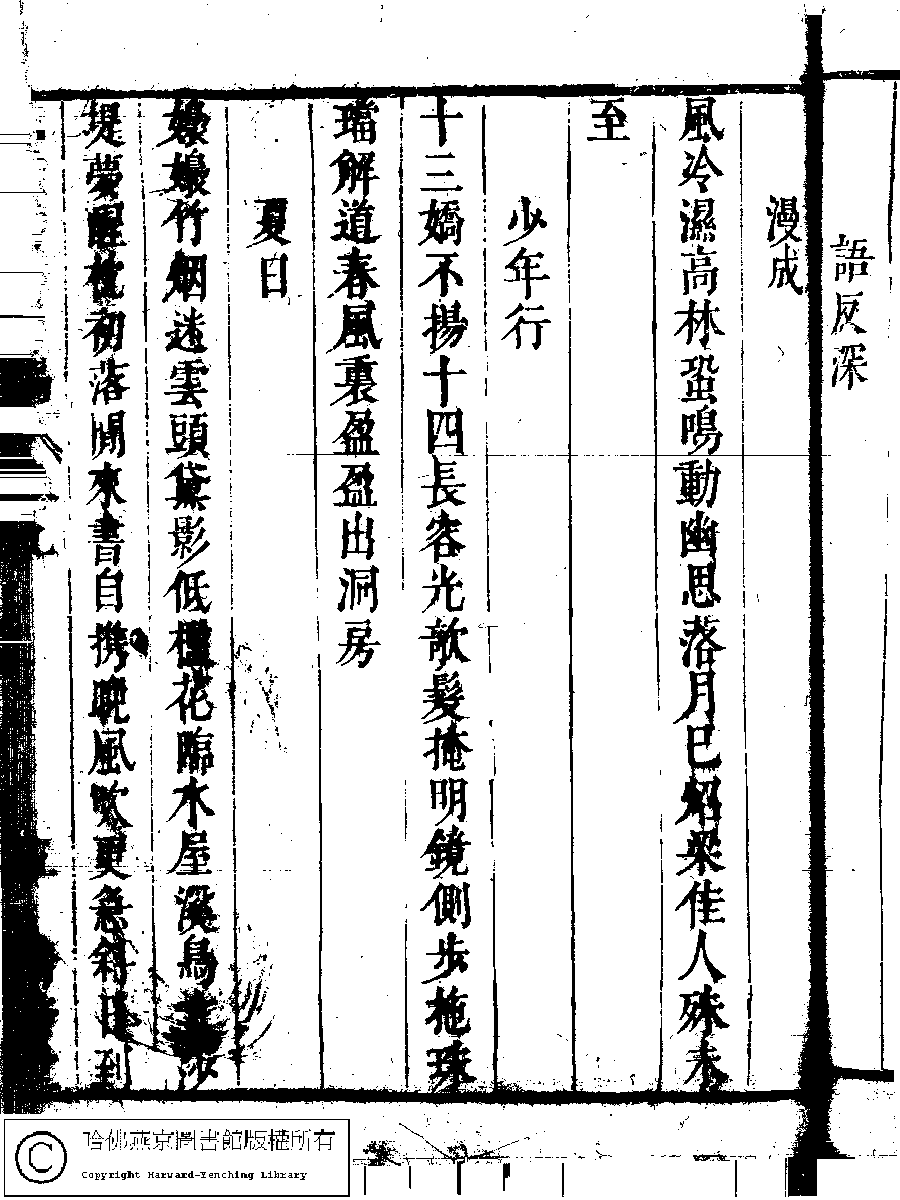 語反深
漫成
風冷濕高林蛩鳴動幽思落月已炤梁佳人殊未
至
少年行
十三嬌不揚十四長容光欹髮掩明鏡側步拖珠
璫解道春風裏盈盈出洞房
夏日
嫋嫋竹烟迷雲頭黛影低檻花臨水屋溪鳥沙
堤夢醒枕初落閒來書自携晚風吹更急斜日到
哈佛燕京圖書館版權所有
Copyright Harvard-Yenching Library